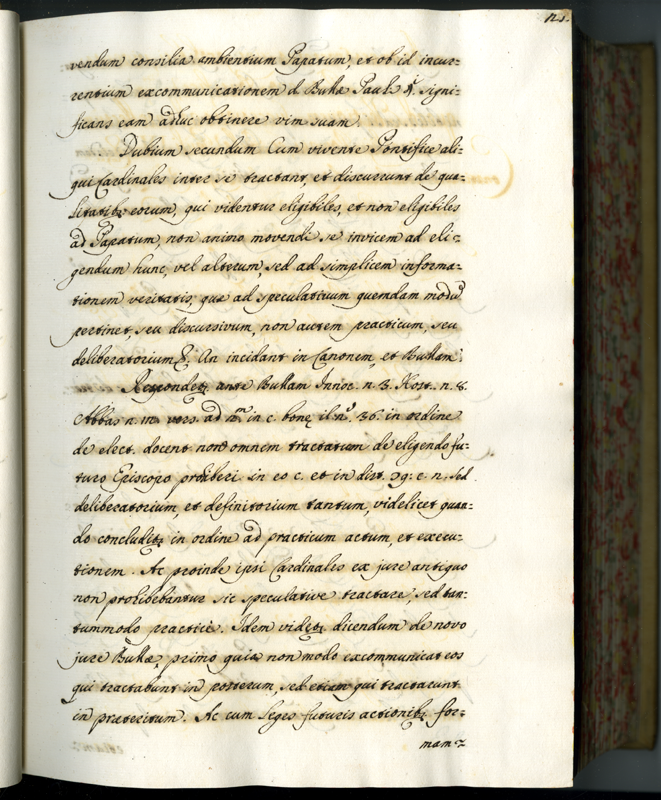 vendum consilia ambientium Papatum, et ob id incur=
rentium excommunicationem d. Bullæ Pauli 4. signi=
ficans eam adhuc obtinere vim suam.
Dubium secundum Cum vivente Pontifice ali=
qui Cardinales inter se tractant, et discurrunt de qua=
litatibꝫ eorum, qui videntur eligibiles, et non eligibiles
ad Papatum, non animo movendi se invicem ad eli=
gendum hunc, vel alterum, sed ad simplicem informa=
tionem veritatis, quæ ad speculativum quemdam modũ
pertinet, seu discursivum, non autem practicum, seu
deliberatorium &. An incidant in Canonem, et Bullam.
Respondetꝫ ante Bullam Innoc. n. 3. Host. n. 8.
Abbas n. vers. ad in c. bonę 36. in ordine
de elect. docent non omnem tractatum de eligendo fu=
turo Episcopo prohiberi in eo c. et in dist. 79. e. n. sed
deliberatorium et definitorium tantum, videlicet quan=
do concluditꝫ in ordine ad practicum actum, et execu=
tionem. Ac proinde ipsi Cardinales ex jure antiquo
non prohibebantur sic speculative tractare, sed tan=
tummodo practice. Idem videtꝫ dicendum de novo
jure Bullæ, primo quia non modo excommunicat eos
qui tractabunt in posterum, sed etiam qui tractarunt
in præteritum. Ac cum leges futuris actionibꝫ for=
mam